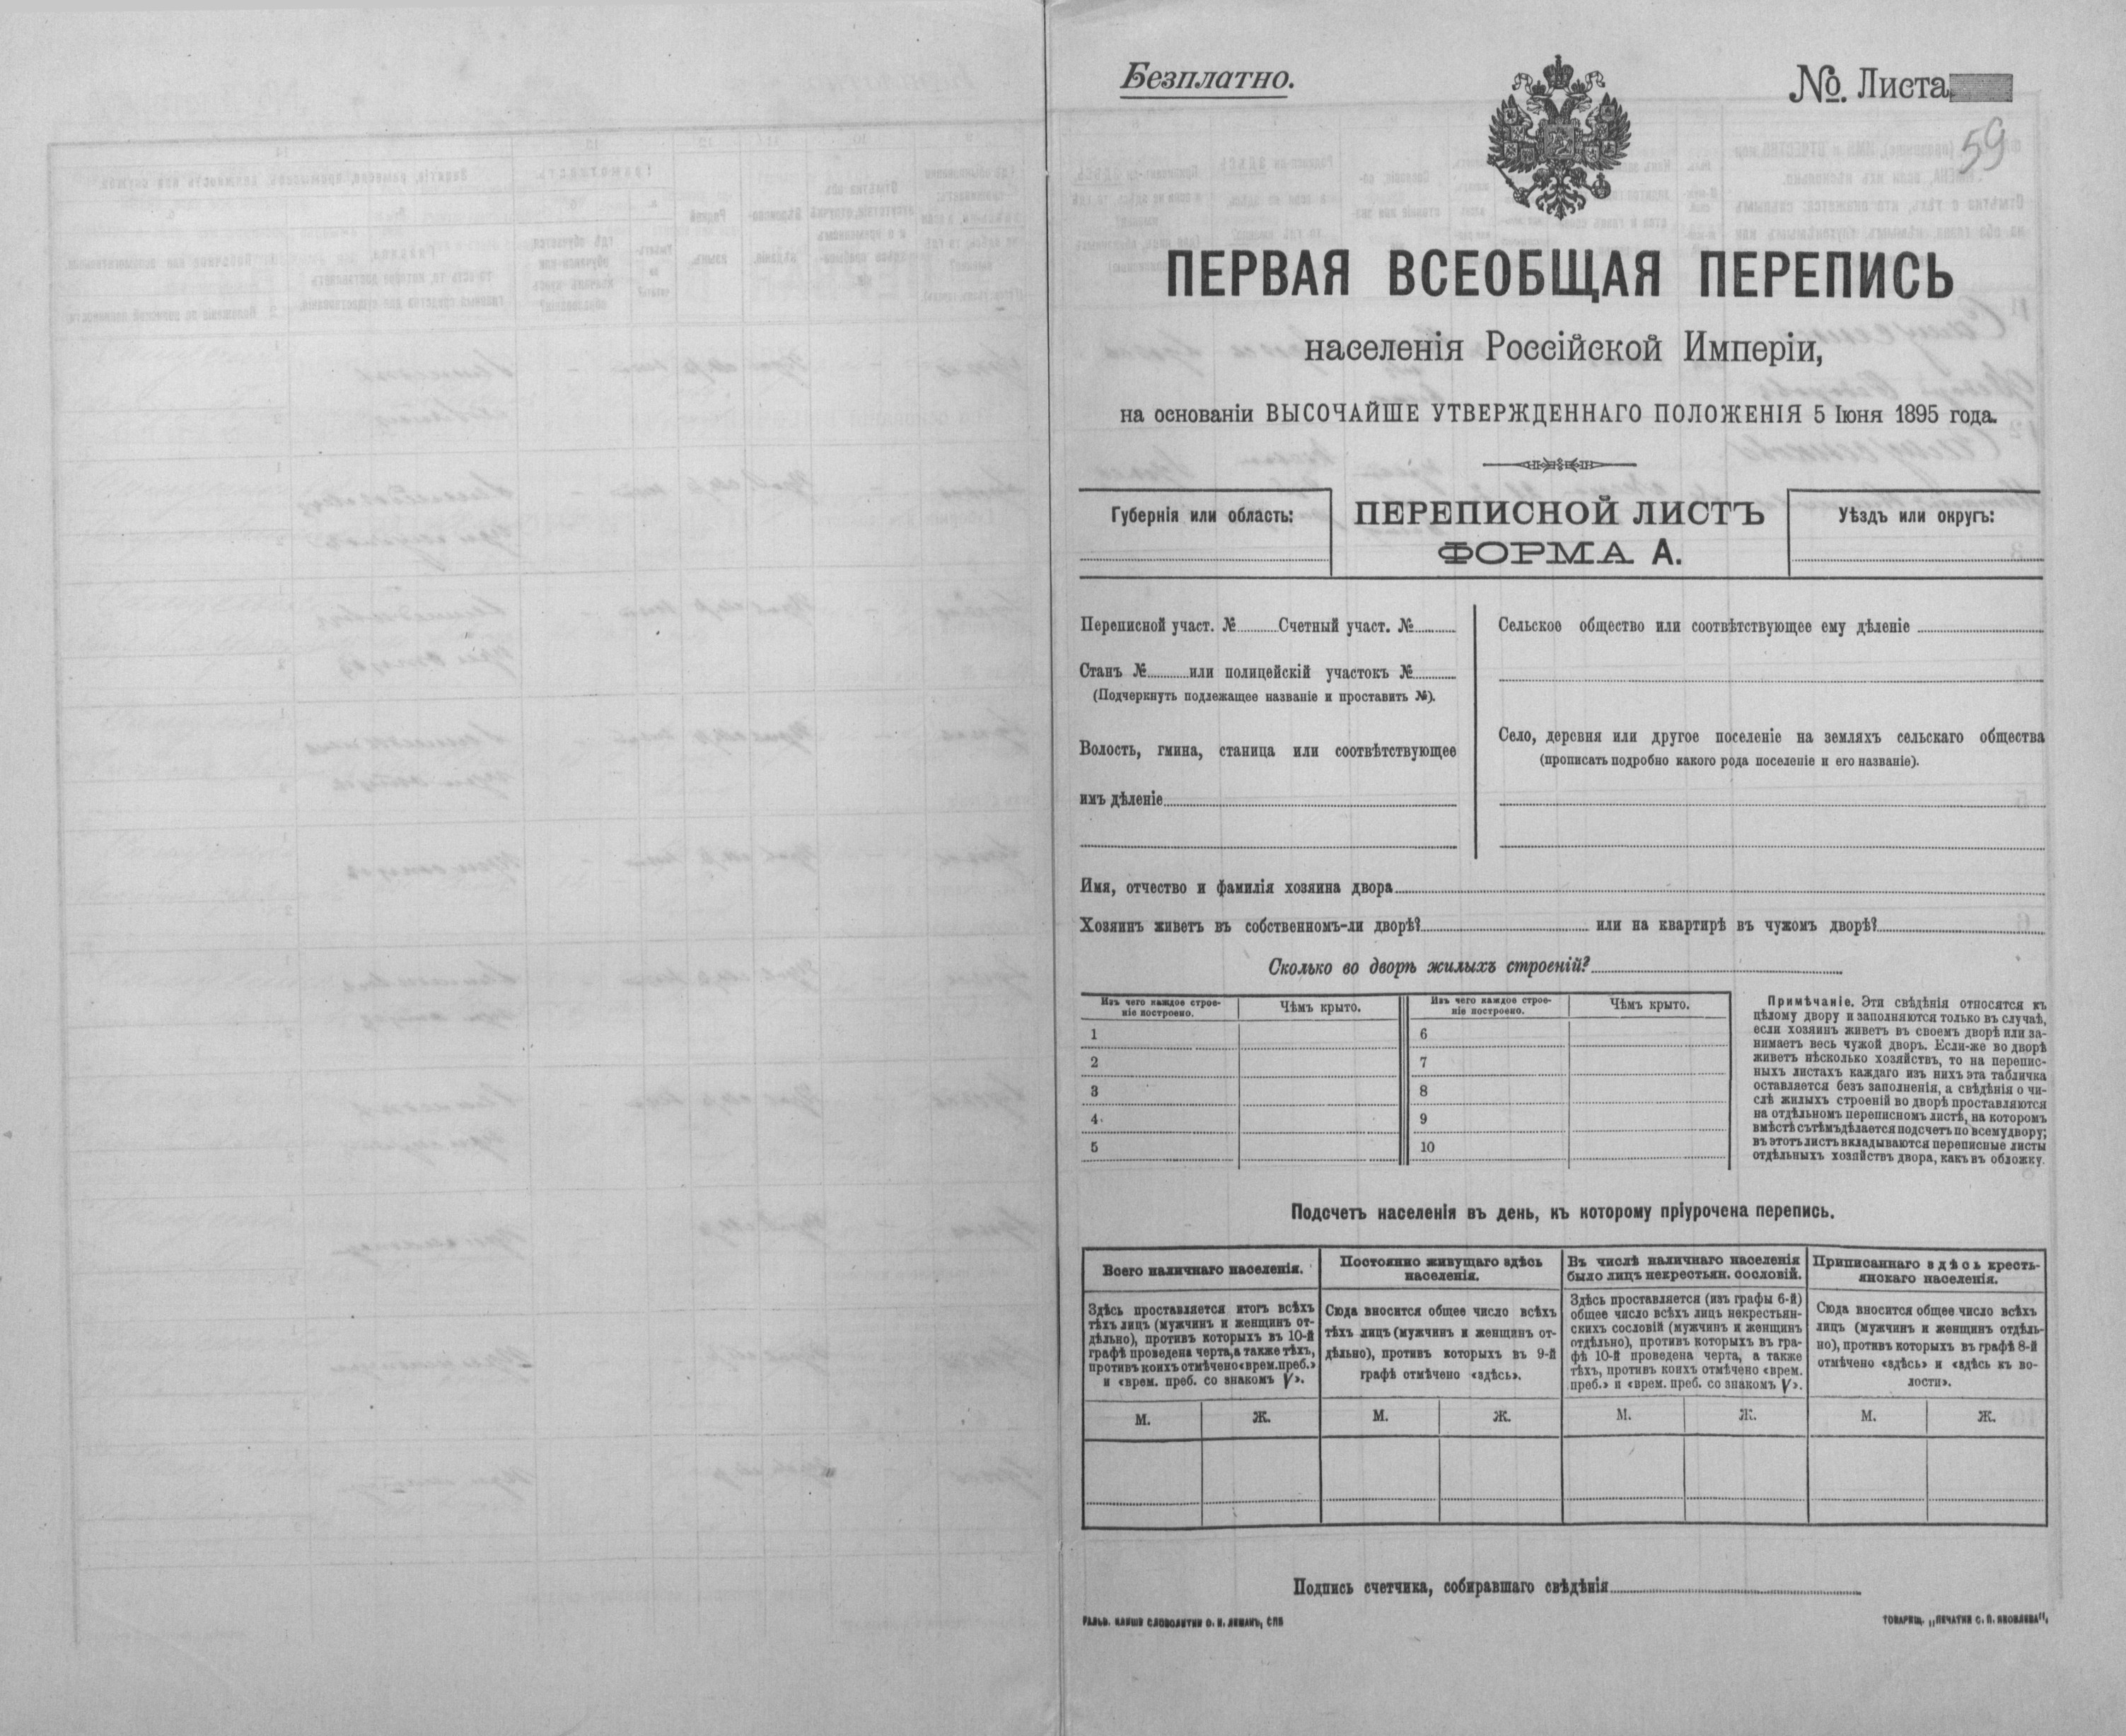 Безплатно.
№. Листа
59
ПЕРВАЯ ВСЕОБЩАЯ ПЕРЕПИСЬ
населенія Россійской Имперіи,
на основаніи ВЫСОЧАЙШЕ УТВЕРЖДЕННАГО ПОЛОЖЕНІЯ 5 Іюня 1895 года.
Губернія или область:
ПЕРЕПИСНОЙ ЛИСТЪ
ФОРМА А.
Уѣздъ или округъ:
Переписной участ. № Счетный участ. №
Станъ № или полицейскій участокъ №
(Подчеркнуть подлежащее названіе и проставить №).
Волость, гмина, станица или соотвѣтствующее
имъ дѣленіе
Сельское общество или соотвѣтствующее ему дѣленіе
Село, деревня или другое поселеніе на земляхъ сельскаго общества
(прописать подробно какого рода поселеніе и его названіе).
Имя, отчество и фамилія хозяина двора
Хозяинъ живетъ въ собственномъ-ли дворѣ? или на квартирѣ въ чужомъ дворѣ?
Сколько во дворѣ жилыхъ строеній?
Изъ чего каждое строе-
ніе построено.
Чѣмъ крыто.
1
2
3
4
5
Изъ чего каждое строе-
ніе построено.
Чѣмъ крыто.
6
7
8
9
10
Примѣчаніе. Эти свѣдѣнія относятся къ
цѣлому двору и заполняются только въ случаѣ,
если хозяинъ живетъ въ своемъ дворѣ или за-
нимаетъ весь чужой дворъ. Если-же во дворѣ
живетъ нѣсколько хозяйствъ, то на перепис-
ныхъ листахъ каждаго изъ нихъ эта табличка
оставляется безъ заполненія, а свѣдѣнія о чи-
слѣ жилыхъ строеній во дворѣ проставляются
на отдѣльномъ переписномъ листѣ, на которомъ
вмѣстѣ съ тѣмъ дѣлается подсчетъ по всему двору;
въ этотъ листъ вкладываются переписные листы
отдѣльныхъ хозяйствъ двора, какъ въ обложку.
Подсчетъ населенія въ день, къ которому пріурочена перепись.
Всего наличнаго населенія.
Здѣсь проставляется итогъ всѣхъ
тѣхъ лицъ (мужчинъ и женщинъ от-
дѣльно), противъ которыхъ въ 10-й
графѣ проведена черта, а также тѣхъ,
противъ коихъ отмѣчено «врем. преб.»
и «врем. преб. со знакомъ V».
М. Ж.
Постоянно живущаго здѣсь
населенія.
Сюда вносится общее число всѣхъ
тѣхъ лицъ (мужчинъ и женщинъ от-
дѣльно), противъ которыхъ въ 9-й
графѣ отмѣчено «здѣсь».
М. Ж.
Въ числѣ наличнаго населенія
было лицъ некрестьян. сословій.
Здѣсь проставляется (изъ графы 6-й)
общее число всѣхъ лицъ некрестьян-
скихъ сословій (мужчинъ и женщинъ
отдѣльно), противъ которыхъ въ гра-
фѣ 10-й проведена черта, а также
тѣхъ, противъ коихъ отмѣчено «врем.
преб.» и «врем. преб. со знакомъ V».
М. Ж.
Приписаннаго здѣсь кресть-
янскаго населенія.
Сюда вносится общее число всѣхъ
лицъ (мужчинъ и женщинъ отдѣль-
но), противъ которыхъ въ графѣ 8-й
отмѣчено «здѣсь» и «здѣсь къ во-
лости».
М. Ж.
Подпись счетчика, собиравшаго свѣдѣнія
ГАЛЬВ. КЛИШЕ СЛОВОЛИТНИ О. И. ЛЕМАНЪ, СПБ
ТОВАРИЩ. „ПЕЧАТНЯ С. П. ЯКОВЛЕВА".